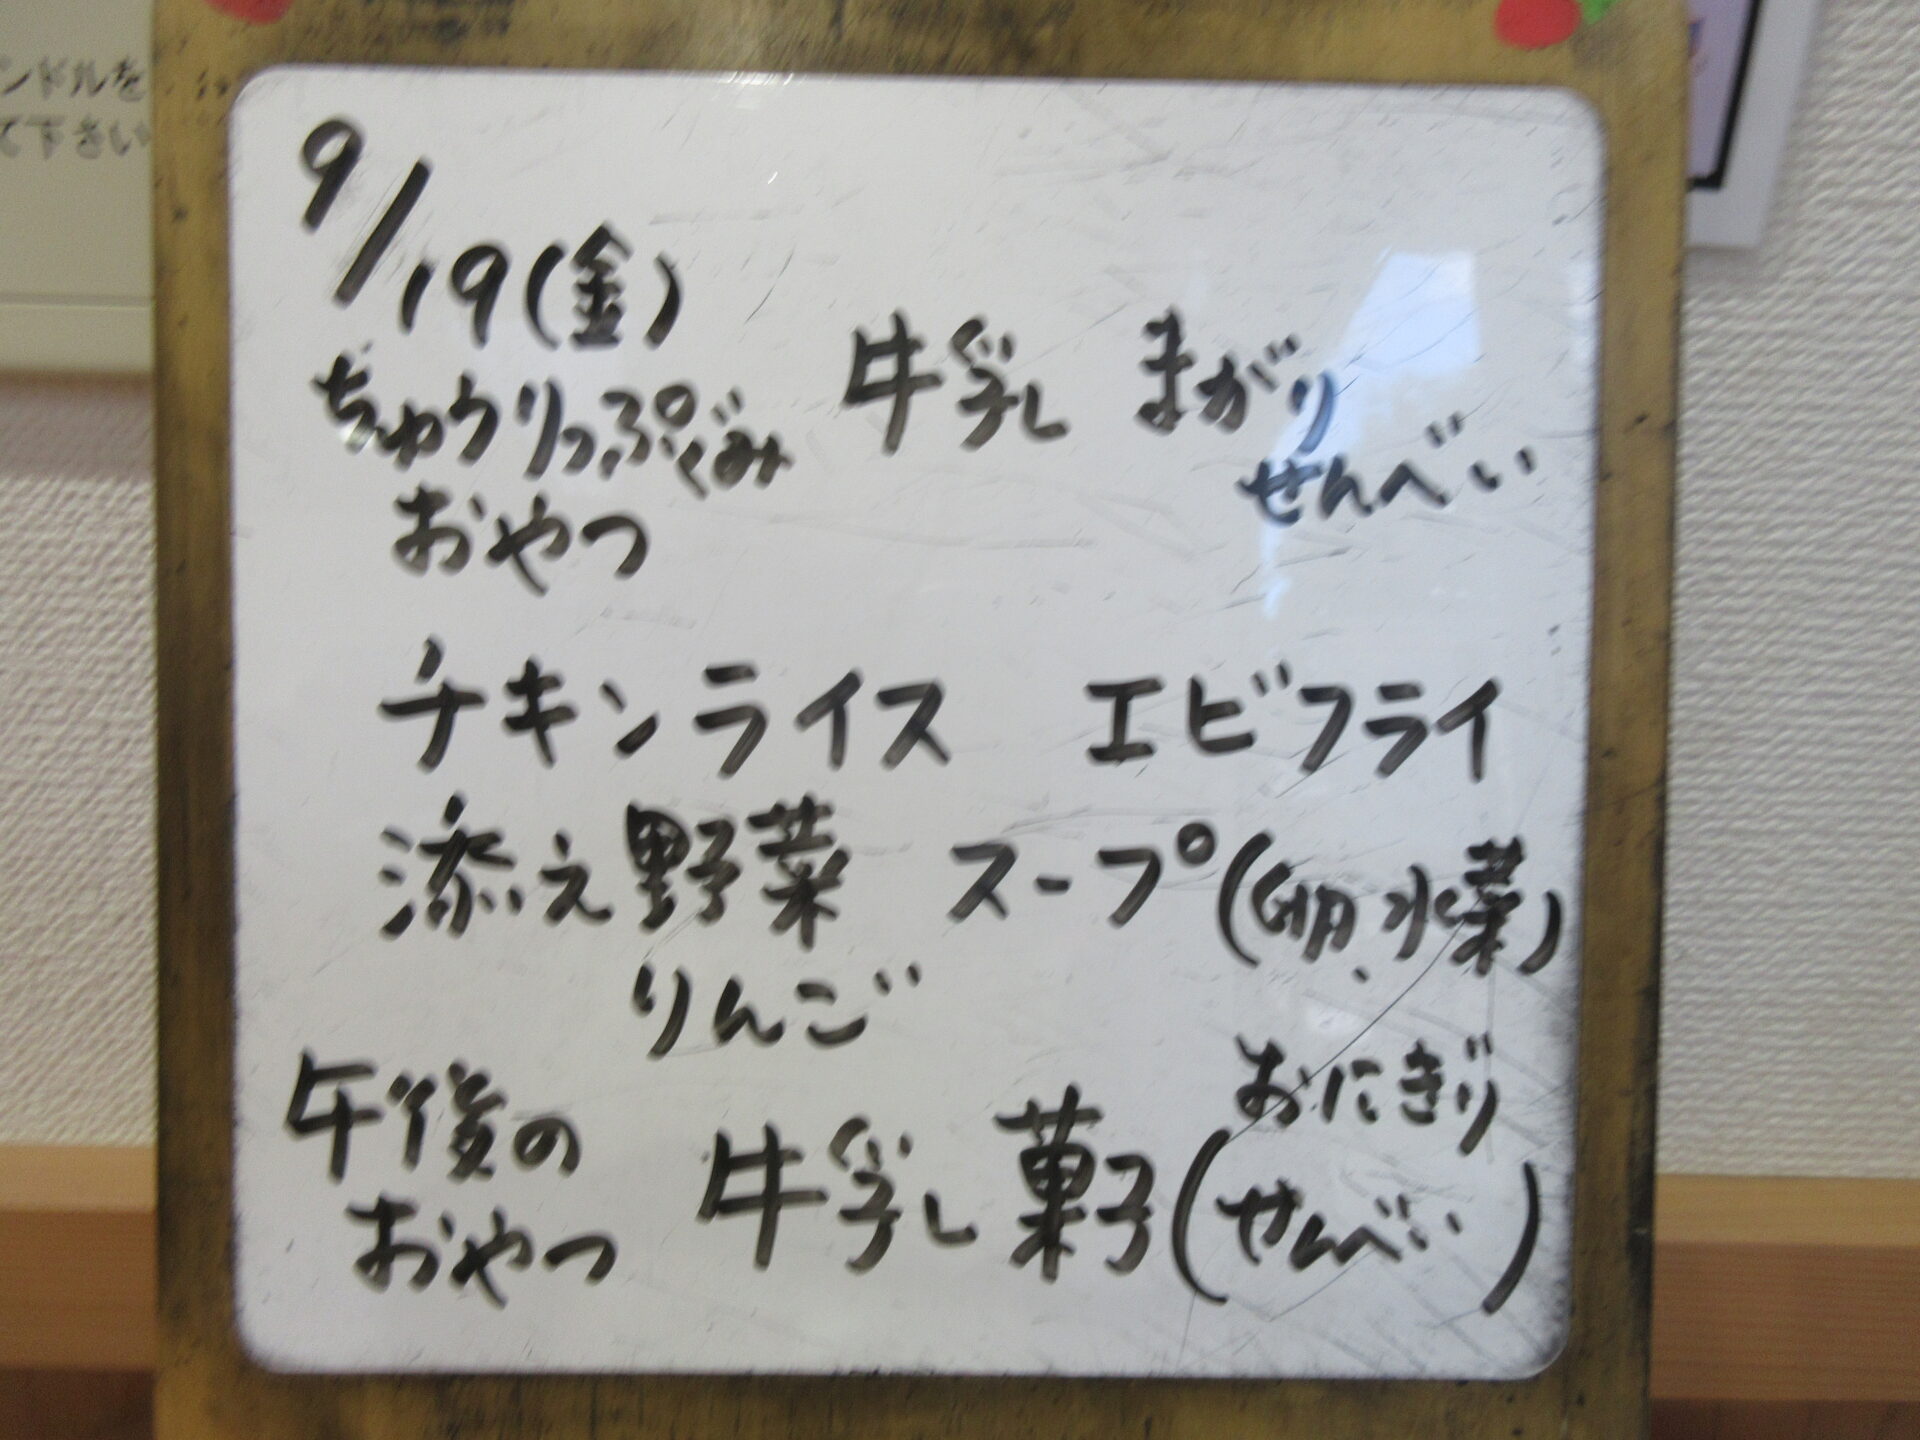 9/19(金)
ちゅうりっぷぐみ 牛乳 まがり
せんべい
おやつ
チキンライス エビフライ
添え野菜 スープ(卵、水菜)
りんご
午後の
おやつ 牛乳 菓子(おにぎり
せんべい)